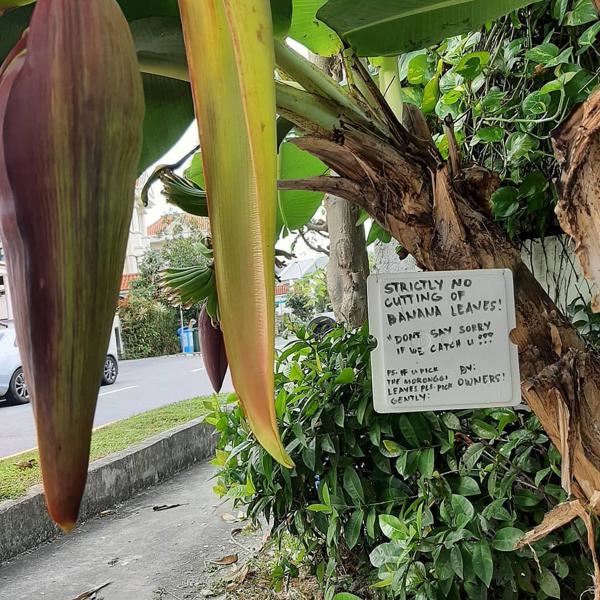 STRICTLY NO
CUTTING OF
BANANA LEAVES!
"DONT SAY SORRY
IF WE CATCH U !!!
PS: IF U PICK
THE MORONGGI
LEAVES PLS. PICK
GENTLY:
BY:
OWNERS!